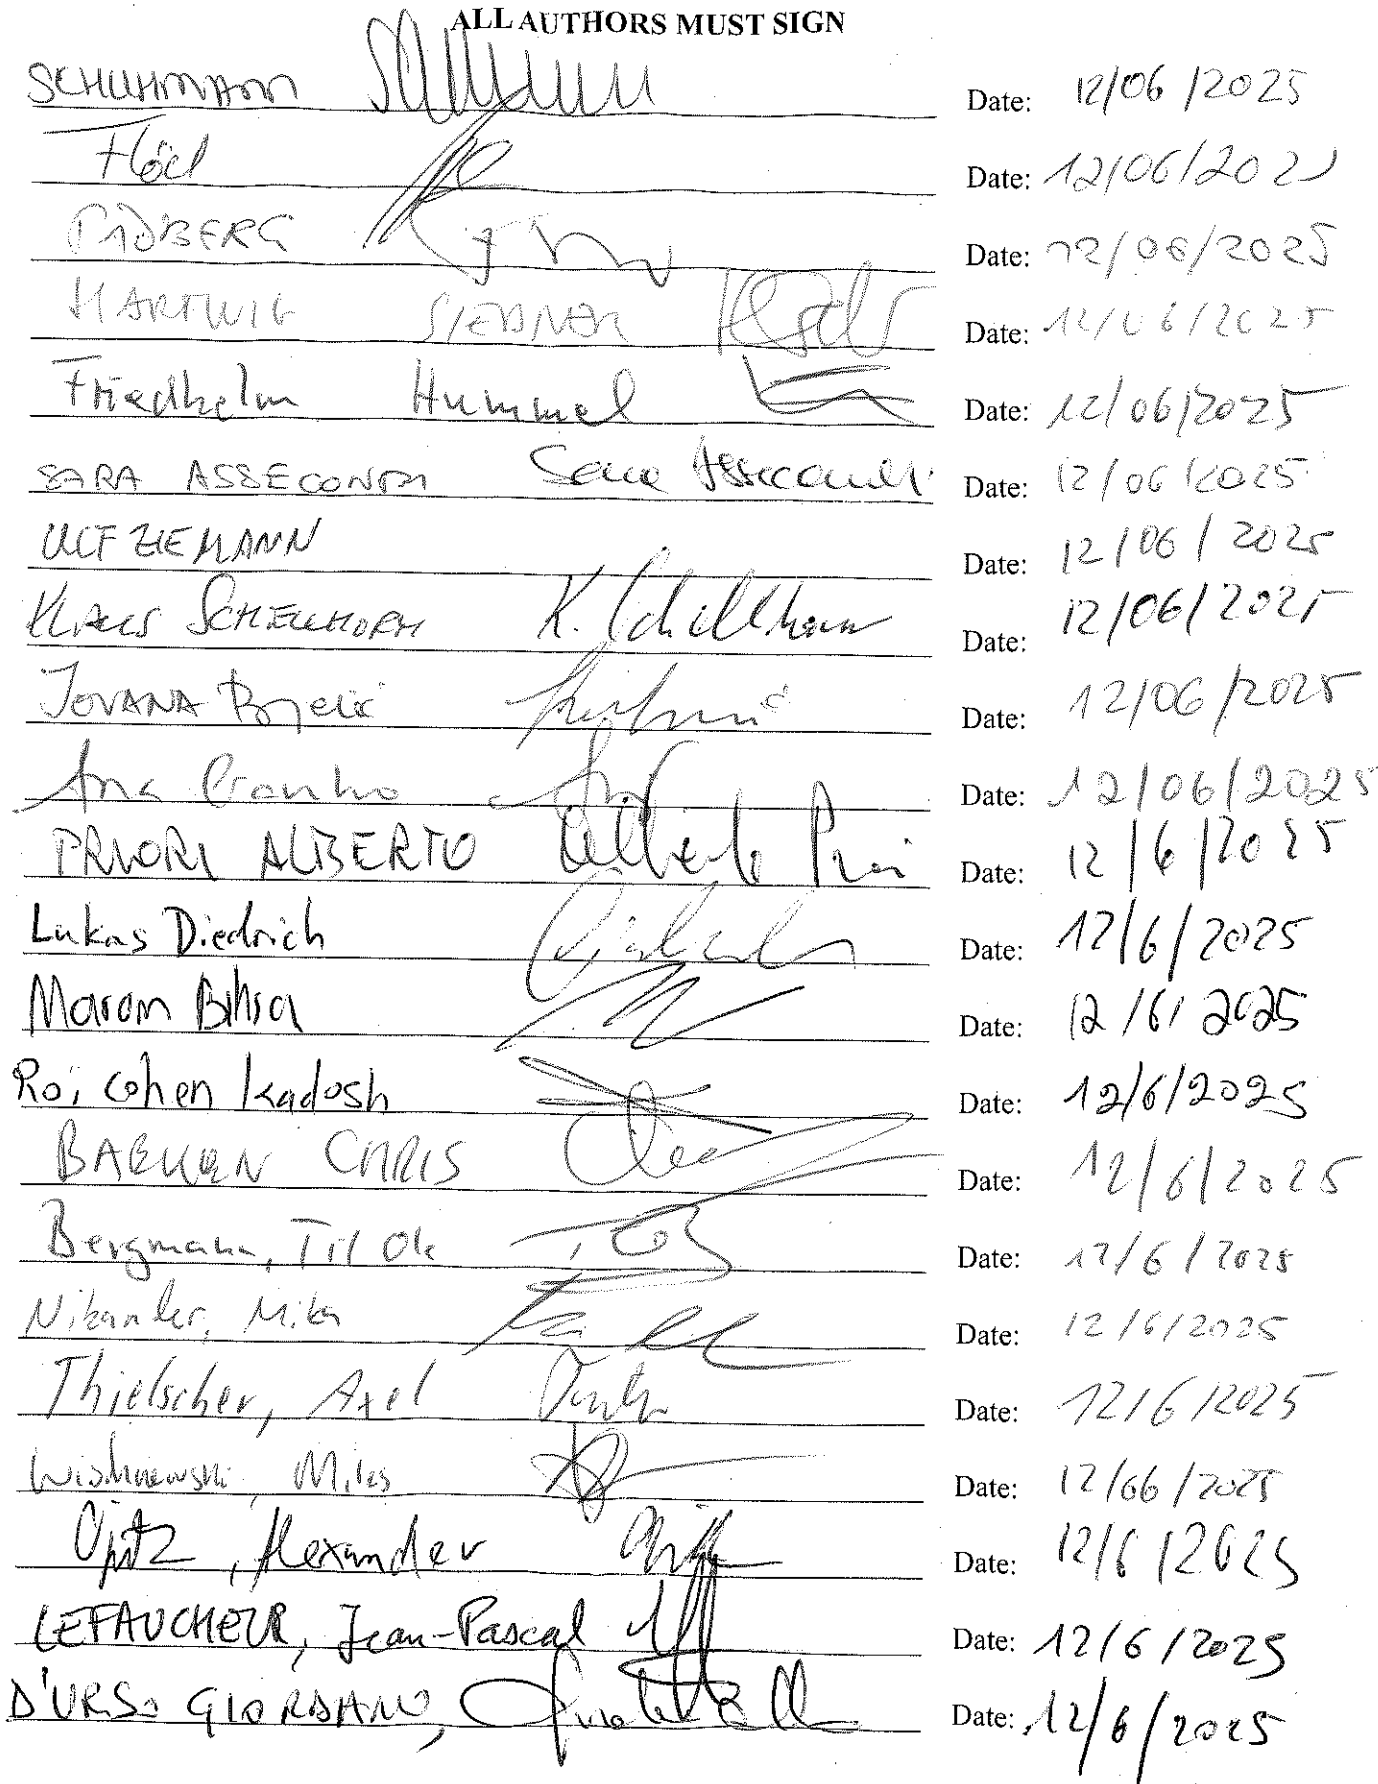 ALL AUTHORS MUST SIGN
SCHUHMANN Date: 12/06/2025
Flöel Date: 12/06/2025
FRIDBERG Date: 12/06/2025
HARTWIG SIEBNER Date: 12/06/2025
Friedhelm Hummel Date: 12/06/2025
SARA ASSECONDI Sara Assecondi Date: 12/06/2025
ULF ZIEMANN Date: 12/06/2025
KLAUS SCHELLHORN K. Schellhorn Date: 12/06/2025
JOVANA Bjelić Date: 12/06/2025
Ana Date: 12/06/2025
PRIORI ALBERTO Alberto Priori Date: 12/6/2025
Lukas Diedrich Date: 12/6/2025
Marom Bikson Date: 12/6/2025
Roi Cohen Kadosh Date: 12/6/2025
BAEKEN CHRIS Date: 12/6/2025
Bergmann, Til Ole Date: 12/6/2025
Nikander, Mika Date: 12/6/2025
Thielscher, Axel Date: 12/6/2025
Wischnewski, Miles Date: 12/06/2025
Opitz, Alexander Date: 12/6/2025
LEFAUCHEUR, Jean-Pascal Date: 12/6/2025
D'URSO GIORDANO, Date: 12/6/2025